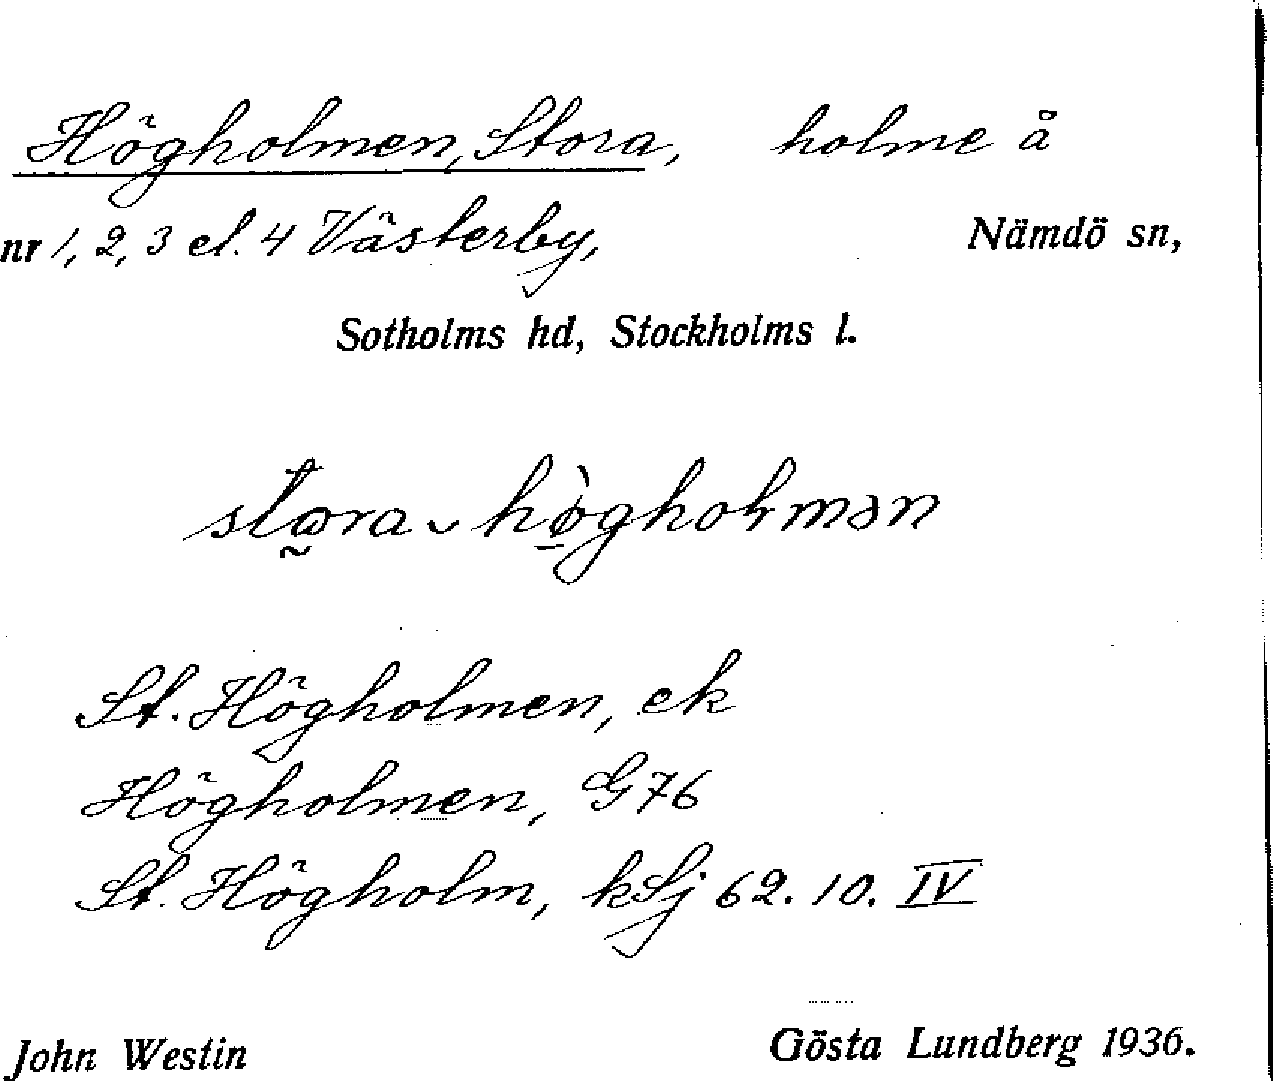 Högholmen, Stora, holme å
nr 1, 2, 3 el. 4 Västerby, Nämdö sn,
Sotholms hd, Stockholms l.
St. Högholmen, ek
Högholmen, G76
St. Högholm, kSj 62. 10. IV
John Westin Gösta Lundberg 1936.